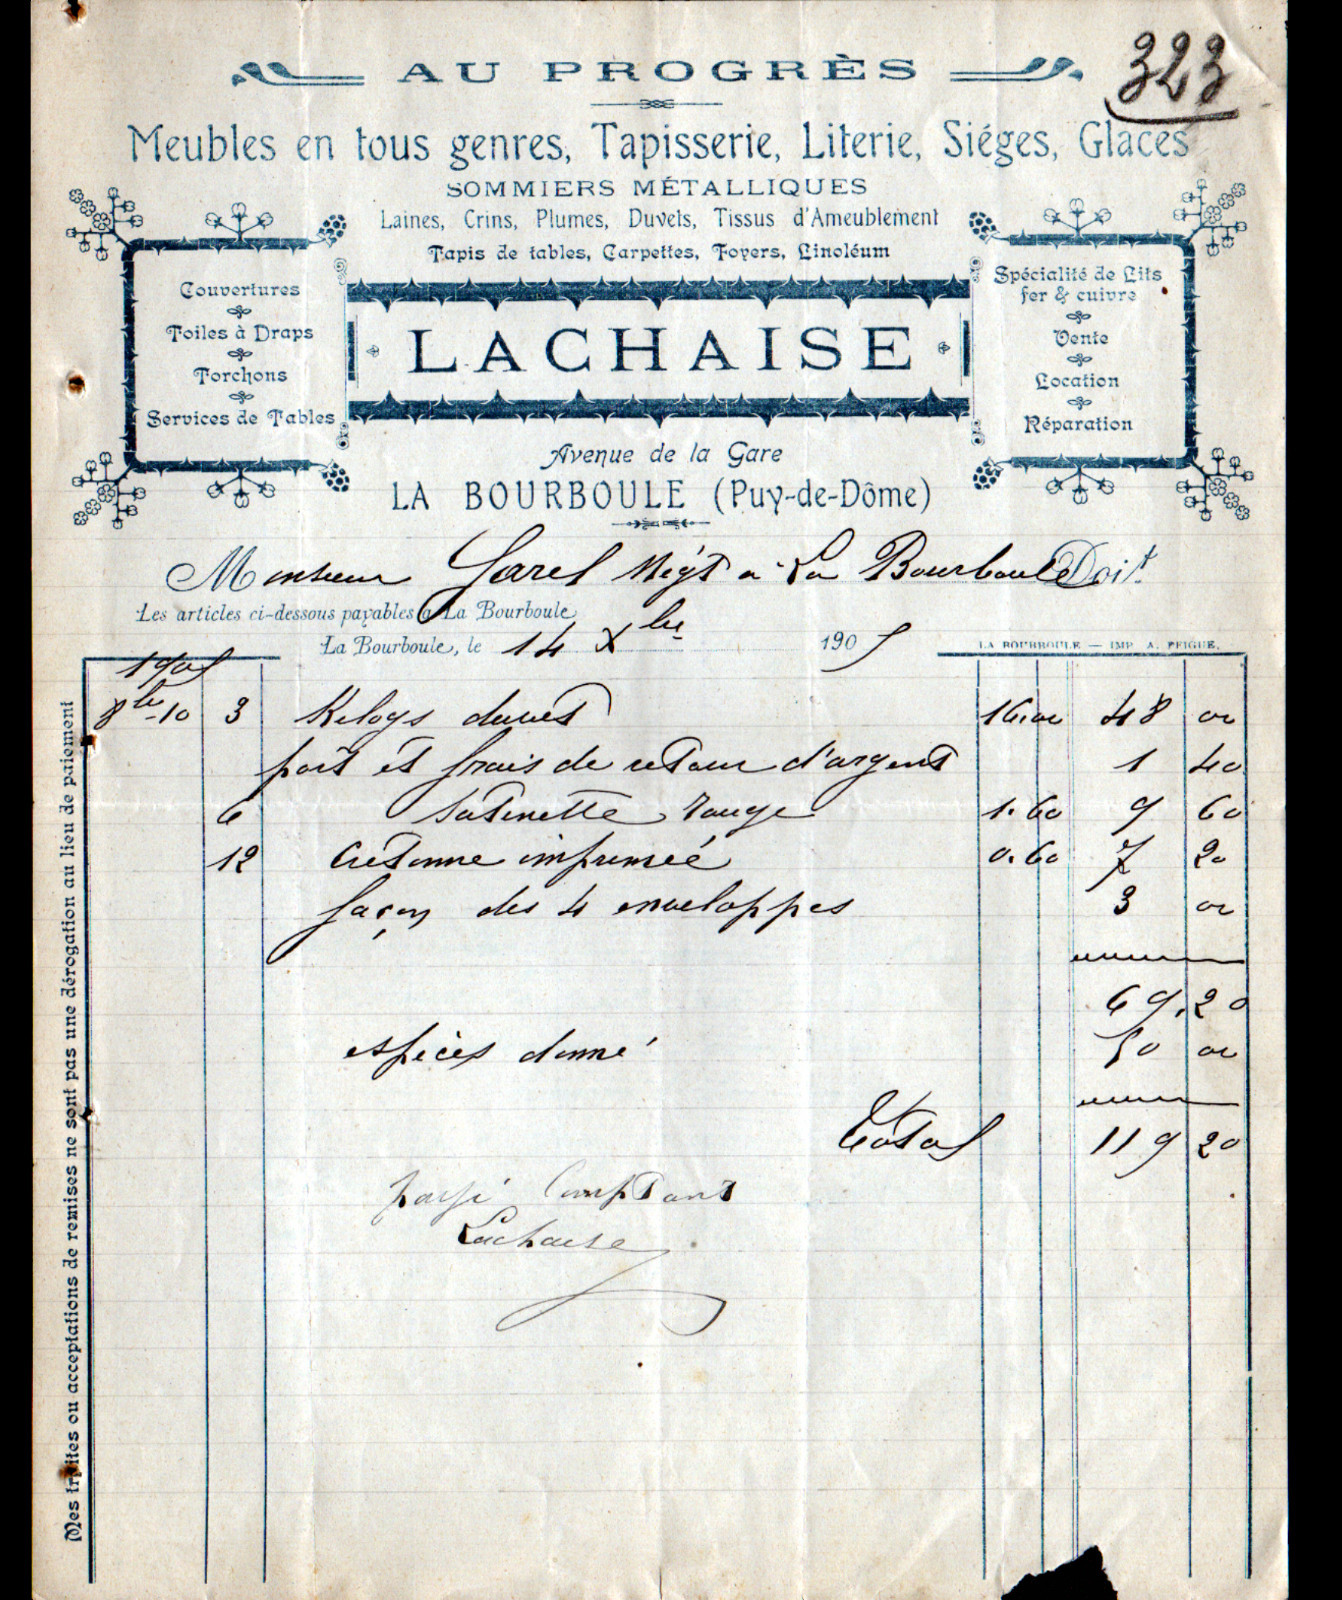 323
AU PROGRÈS
Meubles en tous genres, Tapisserie, Literie, Siéges, Glaces
SOMMIERS MÉTALLIQUES
Laines, Crins, Plumes, Duvets, Tissus d'Ameublement
Tapis de tables, Carpettes, Foyers, Linoléum
Couvertures
Toiles à Draps
Torchons
Services de Tables
LACHAISE
Spécialité de Lits
fer & cuivre
Vente
Location
Réparation
Avenue de la Gare
LA BOURBOULE (Puy-de-Dôme)
Monsieur Garel Négt a La Bourboule Doit
Les articles ci-dessous payables a La Bourboule
La Bourboule, le 14 Xbre 1905
LA BOURBOULE — IMP. A. PEIGUE.
1905
8bre-10 3 Kilogs duvet 16.00 48 00
port et frais de retour d'argent 1 40
6 Satinette rouge 1.60 9 60
12 Cretonne imprimée 0.60 7 20
façon des 4 enveloppes 3 00
69.20
espèces donné 50 00
Total 119 20
payé Comptant
Lachaise
Mes traites ou acceptations de remises ne sont pas une dérogation au lieu de paiement